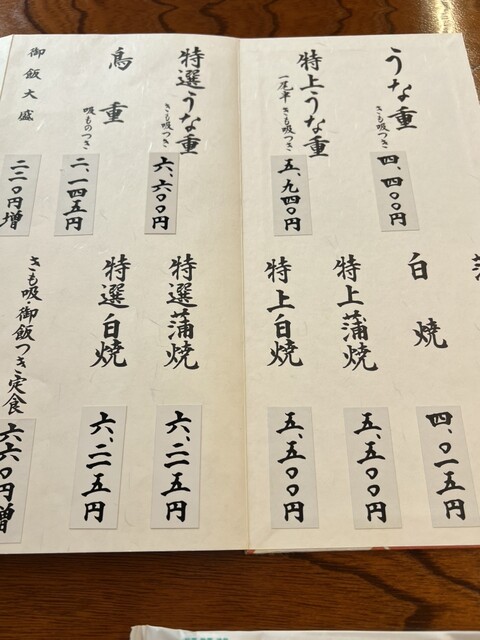 うな重
きも吸つき
四、四〇〇円
特上うな重
一尾半 きも吸つき
五、九四〇円
特選うな重
きも吸つき
六、六〇〇円
鳥重
吸ものつき
二、一四五円
御飯大盛
二二〇円増
蒲
白焼
四、〇一五円
特上蒲焼
五、五〇〇円
特上白焼
五、五〇〇円
特選蒲焼
六、二一五円
特選白焼
六、二一五円
きも吸・御飯つき定食
六六〇円増